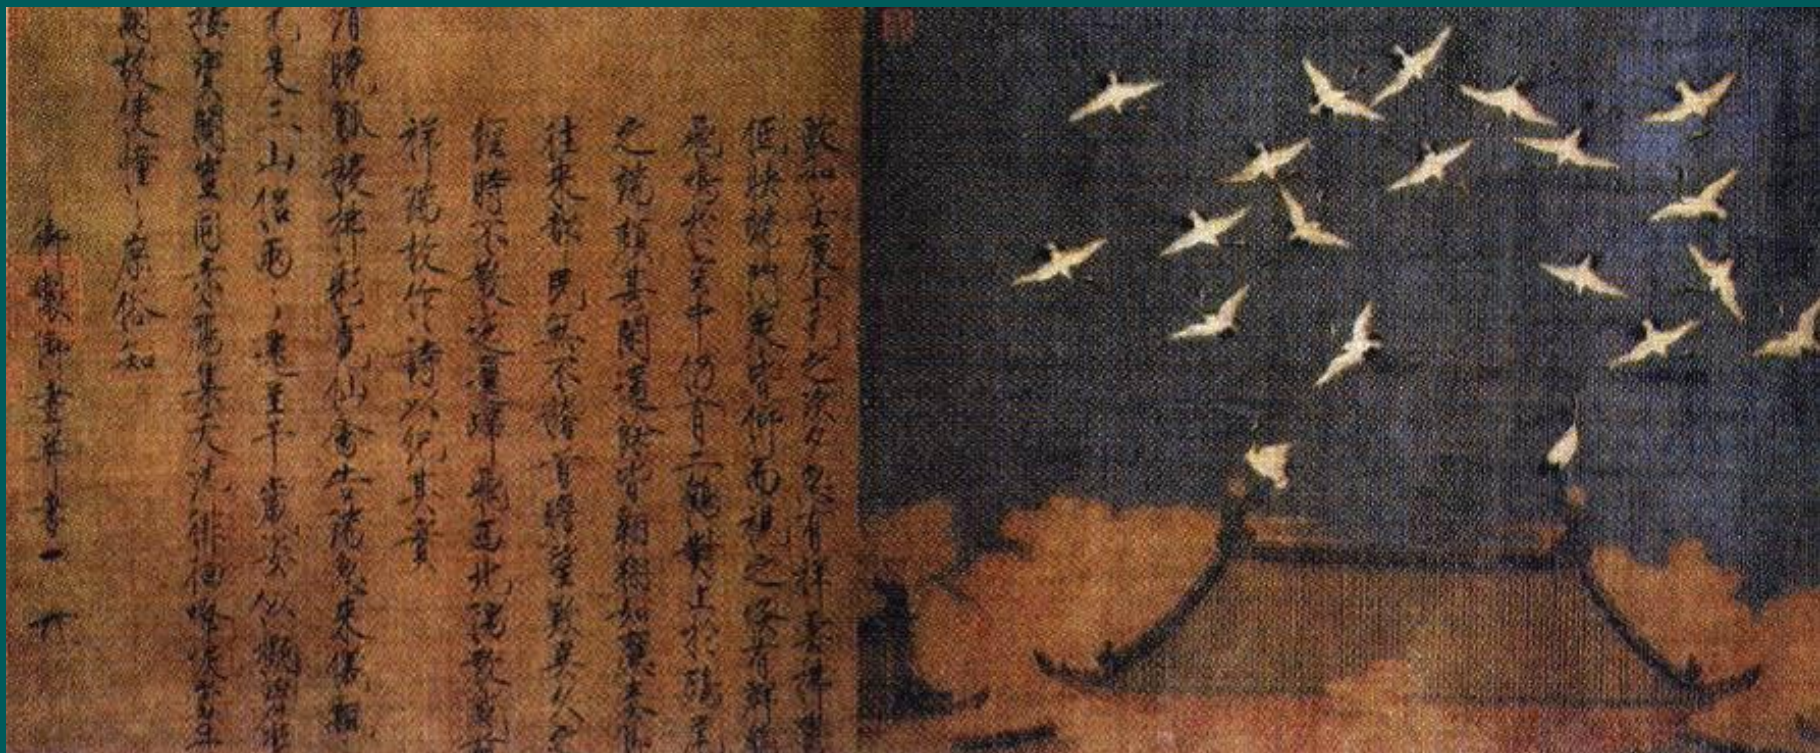 政和壬辰上元之次夕忽有祥雲拂鬱
低映端門衆皆仰而視之倏有群鶴
飛鳴於空中仍有二鶴對止於鴟尾
之端頗甚閒適餘皆翱翔如應奏節
往來都民無不稽首瞻望歎異久之
經時不散迤邐歸飛西北隅散感茲
祥瑞故作詩以紀其實
清曉觚稜拂彩霓仙禽告瑞忽來儀飄
元是三山侶兩〻還呈千歲姿似擬碧
棲寶閣豈同赤雁集天池徘徊嘹唳當丹
闕故使憧〻庶俗知
御製御畫并書